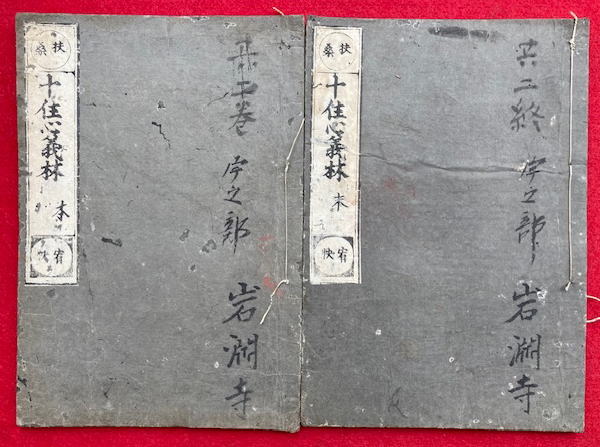 扶桑
十住心義林 本
宥快
二巻 之部 岩淵寺
扶桑
十住心義林 末
宥快
共二終 之部 岩淵寺